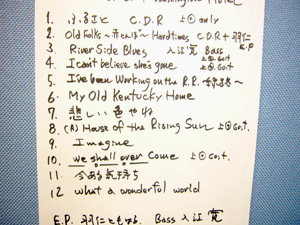 Washington Hotel
1. ふるさと C.D.R 上④ only
2. Old Folks ～赤とんぼ～ Hardtimes C.D.R + 羽仁 E.P
3. River Side Blues 入江寛 Bass
4. I can't believe she's gone
5. I've been Working on the R.R.
6. My Old Kentucky Home
7. 悲しい色やね
8. (A) House of the Rising Sun 上④ Go.t.
9. Imagine
10. we shall over come 上④ Go.t.
11. 今ある気持ち
12 what a wonderful world
E.P. 羽仁ともはる. Bass 入江寛